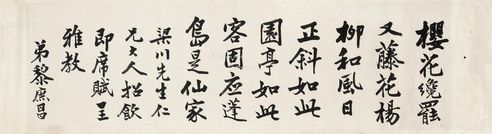 櫻花纔罷
又藤花楊
柳和風日
正斜如此
園亭如此
客固應蓬
島是仙家
梁川先生仁
兄大人招飲
即席賦呈
雅教
弟黎庶昌